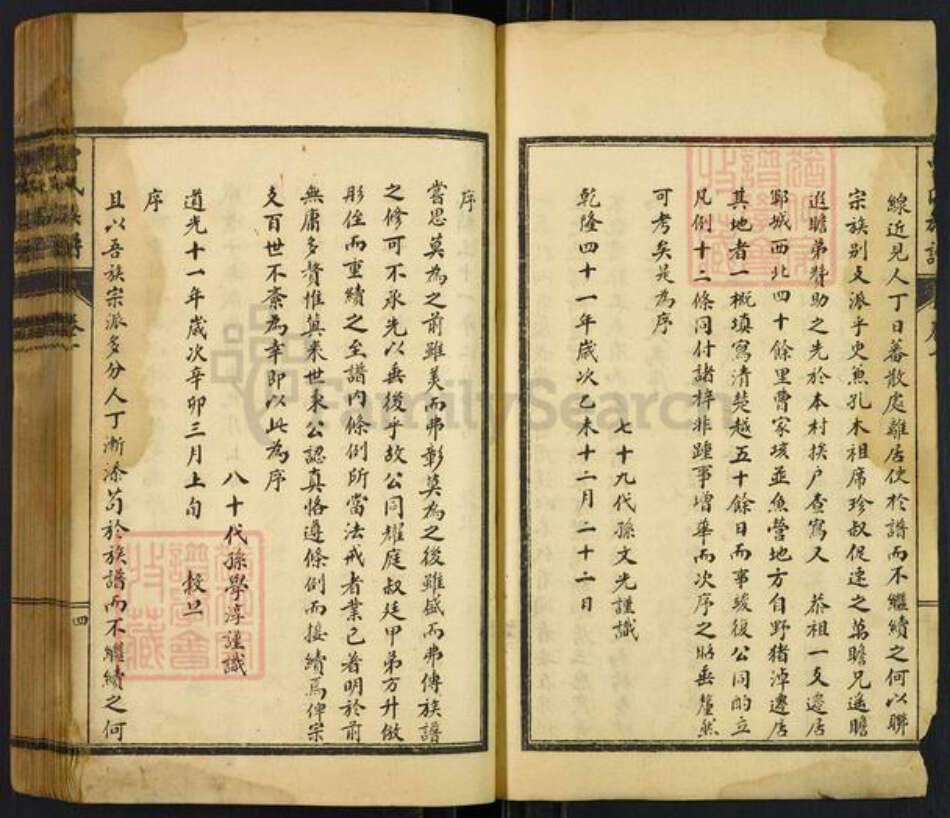 線近見人丁日蕃散處離居使於譜而不繼續之何以聯
宗族别支派乎史魚孔木祖席珍叔促速之萬瞻兄遥瞻
遐瞻弟贊助之先於本村挨户查寫又 恭祖一支遷居
鄆城西北四十餘里曹家垓並魚營地方自野猪淖遷居
其地者一概填寫清楚越五十餘日而事竣復公同酌立
凡例十二條同付諸梓非踵事增華而次序之昭垂釐然
可考矣是為序
七十九代孫文光謹識
乾隆四十一年歲次乙未十二月二十二日
序
嘗思莫為之前雖美而弗彰莫為之後雖盛而弗傳族譜
之修可不承先以垂後乎故公同耀庭叔廷甲弟方升倣
彤侄而重續之至譜内條例所當法戒者業已著明於前
無庸多贅惟冀來世秉公認真恪遵條例而接續焉俾宗
支百世不紊為幸即以此為序
八十代孫學淳謹識
道光十一年歲次辛卯三月上旬 榖旦
序
且以吾族宗派多分人丁漸添苟於族譜而不繼續之何
氏族譜
卷一
四
FamilySearch